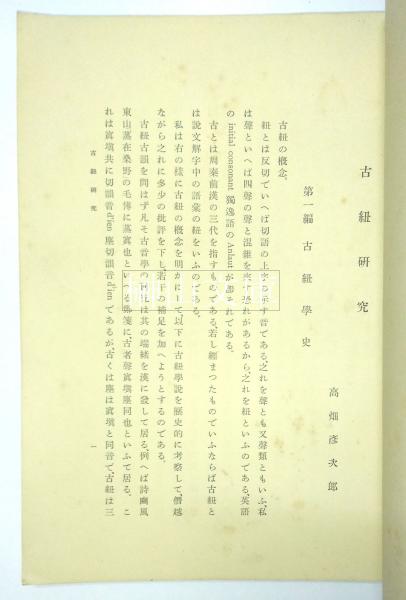 古紐研究
高畑彦次郎
第一編 古紐學史
古紐の概念。
紐とは反切でいへば切語の上字の示す音である、之れを聲とも又聲類ともいふ、私
は聲といへば四聲の聲と混雜を來す恐れがあるから、之れを紐といふのである、英語
の initial consonant 獨逸語の Anlaut が即ちそれである。
古とは周秦前漢の三代を指すものである、若し纒まつたものでいふならば古紐と
は說文解字中の語彙の紐をいふのである。
私は右の樣に古紐の概念を明かにして、以下に古紐學說を歷史的に考察して、僭越
ながら之れに多少の批評を下し、若干の補足を加へようとするのである。
古紐古韻を問はず凡そ古音學の
は其の端緒を漢に發して居る、例へば詩豳風
東山蒸在桑野の毛傳に蒸寘也といへる
箋に、古者聲寘塡塵同也といふて居る。こ
れは寘塡共に切韻音 d'ien 塵切韻音 d'ien であるが、古くは塵は寘塡と同音で、古紐は三
古紐研究
一